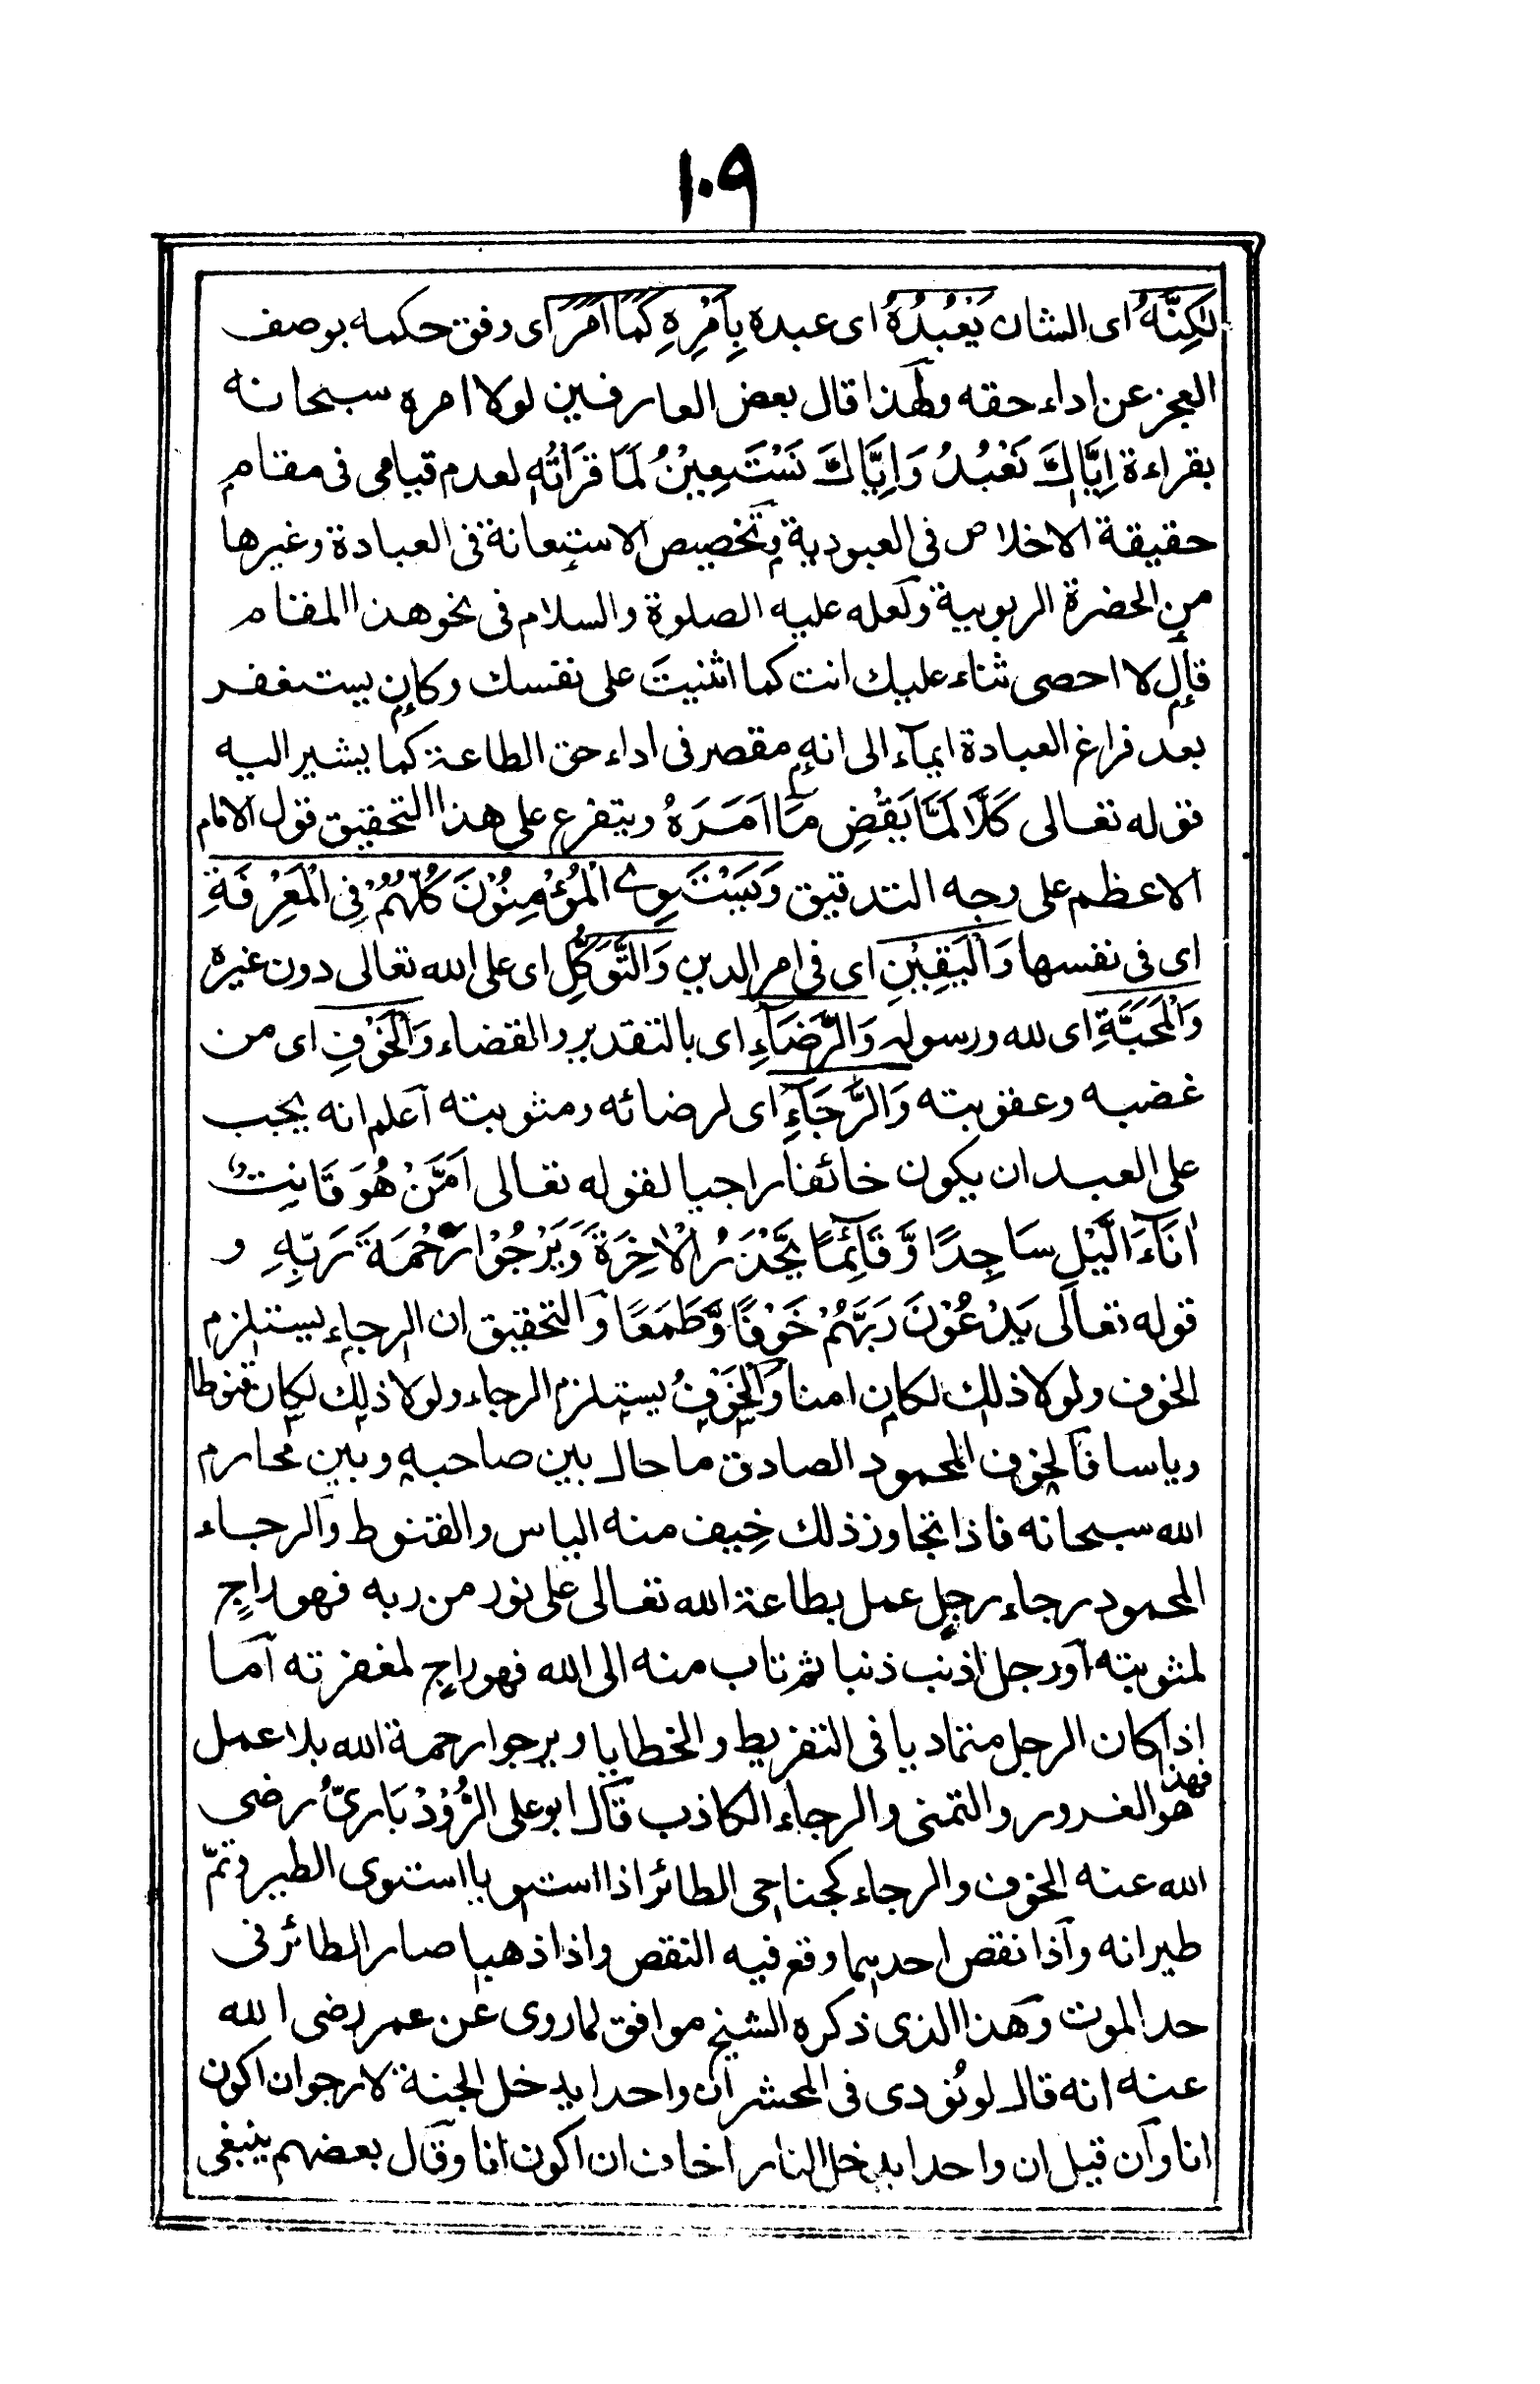 ١٠٩
لٰكِنَّهُ اى الشان يَعْبُدُهُ اى عبده بِاَمْرِهِ كَمَا اَمَرَ اى وفق حكمه بوصف
العجز عن اداء حقه ولهذا قال بعض العارفين لولا امره سبحانه
بقراءة اِيَّاكَ نَعْبُدُ وَاِيَّاكَ نَسْتَعِيْنُ لَمَا قَرَأتُه لعدم قيامى فى مقام
حقيقة الاخلاص فى العبودية وتخصيص الاستعانة فى العبادة وغيرها
من الحضرة الربوبية ولعله عليه الصلوة والسلام فى نحو هذا المقام
قال لا احصى ثناء عليك انت كما اثنيتَ على نفسك وكان يستغفر
بعد فراغ العبادة ايماء الى انه مقصر فى اداء حق الطاعة كما يشير اليه
قوله تعالى كَلَّا لَمَّا يَقْضِ مَا اَمَرَهُ ويتفرع على هذا التحقيق قول الامام
الاعظم على وجه التدقيق وَيَسْتَوِى الْمُؤْمِنُوْنَ كُلُّهُمْ فِى الْمَعْرِفَةِ
اى فى نفسها وَالْيَقِيْنِ اى فى امر الدين وَالتَّوَكُّلِ اى على الله تعالى دون غيره
وَالْمَحَبَّةِ اى لله ورسوله وَالرِّضَاءِ اى بالتقدير والقضاء وَالْخَوْفِ اى من
غضبه وعقوبته وَالرَّجَاءِ اى لرضائه ومثوبته اعلم انه يجب
على العبد ان يكون خائفا راجيا لقوله تعالى اَمَّنْ هُوَ قَانِتٌ
اٰنَآءَ الَّيْلِ سَاجِدًا وَّ قَآئِمًا يَّحْذَرُ الْاٰخِرَةَ وَيَرْجُوْا رَحْمَةَ رَبِّهٖ و
قوله تعالى يَدْعُوْنَ رَبَّهُمْ خَوْفًا وَّطَمَعًا والتحقيق ان الرجاء يستلزم
الخوف ولولا ذلك لكان امنا وَالْخَوْفُ يستلزم الرجاء ولولا ذلك لكان قنوطا
وياسا فالخوف المحمود الصادق ما حال بين صاحبه وبين محارم
الله سبحانه فاذا تجاوز ذلك خِيف منه الياس والقنوط والرجاء
المحمود رجاء رجل عمل بطاعة الله تعالى على نور من ربه فهو راجٍ
لمثوبته او رجل اذنب ذنبا ثم تاب منه الى الله فهو راجٍ لمغفرته اما
اذا كان الرجل متماديا فى التفريط والخطايا ويرجوا رحمة الله بلا عمل
فهذا هو الغرور والتمنى والرجاء الكاذب قال ابو على الرُّوْذْبَارِىُّ رضى
الله عنه الخوف والرجاء كجناحى الطائر اذا استويا استوى الطير وتمّ
طيرانه واذا نقص احدهما وقع فيه النقص واذا ذهبا صار الطائر فى
حد الموت وهذا الذى ذكره الشيخ موافق لما روى عن عمر رضى الله
عنه انه قال لو نُودى فى المحشر ان واحدا يدخل الجنة لارجو ان اكون
انا وان قيل ان واحدا يدخل النار اخاف ان اكون انا وقال بعضهم ينبغى